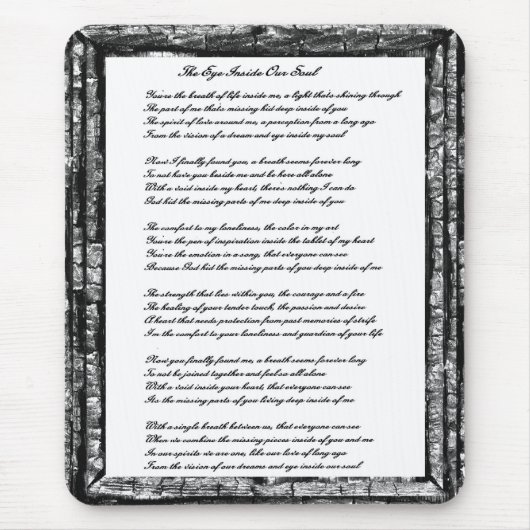 The Eye Inside Our Soul
You're the breath of life inside me, a light thats shining through
The part of me thats missing hid deep inside of you
The spirit of love around me, a perception from a long ago
From the vision of a dream and eye inside my soul
Now I finally found you, a breath seems forever long
To not have you beside me and be here all alone
With a void inside my heart, there's nothing I can do
God hid the missing parts of me deep inside of you
The comfort to my loneliness, the color in my art
You're the pen of inspiration inside the tablet of my heart
You're the emotion in a song, that everyone can see
Because God hid the missing parts of you deep inside of me
The strength that lies within you, the courage and a fire
The healing of your tender touch, the passion and desire
A heart that needs protection from past memories of strife
I'm the comfort to your loneliness and guardian of your life
Now you finally found me, a breath seems forever long
To not be joined together and feel so all alone
With a void inside your heart, that everyone can see
Its the missing parts of you living deep inside of me
With a single breath between us, that everyone can see
When we combine the missing pieces inside of you and me
In our spirits we are one, like our love of long ago
From the vision of our dreams and eye inside our soul